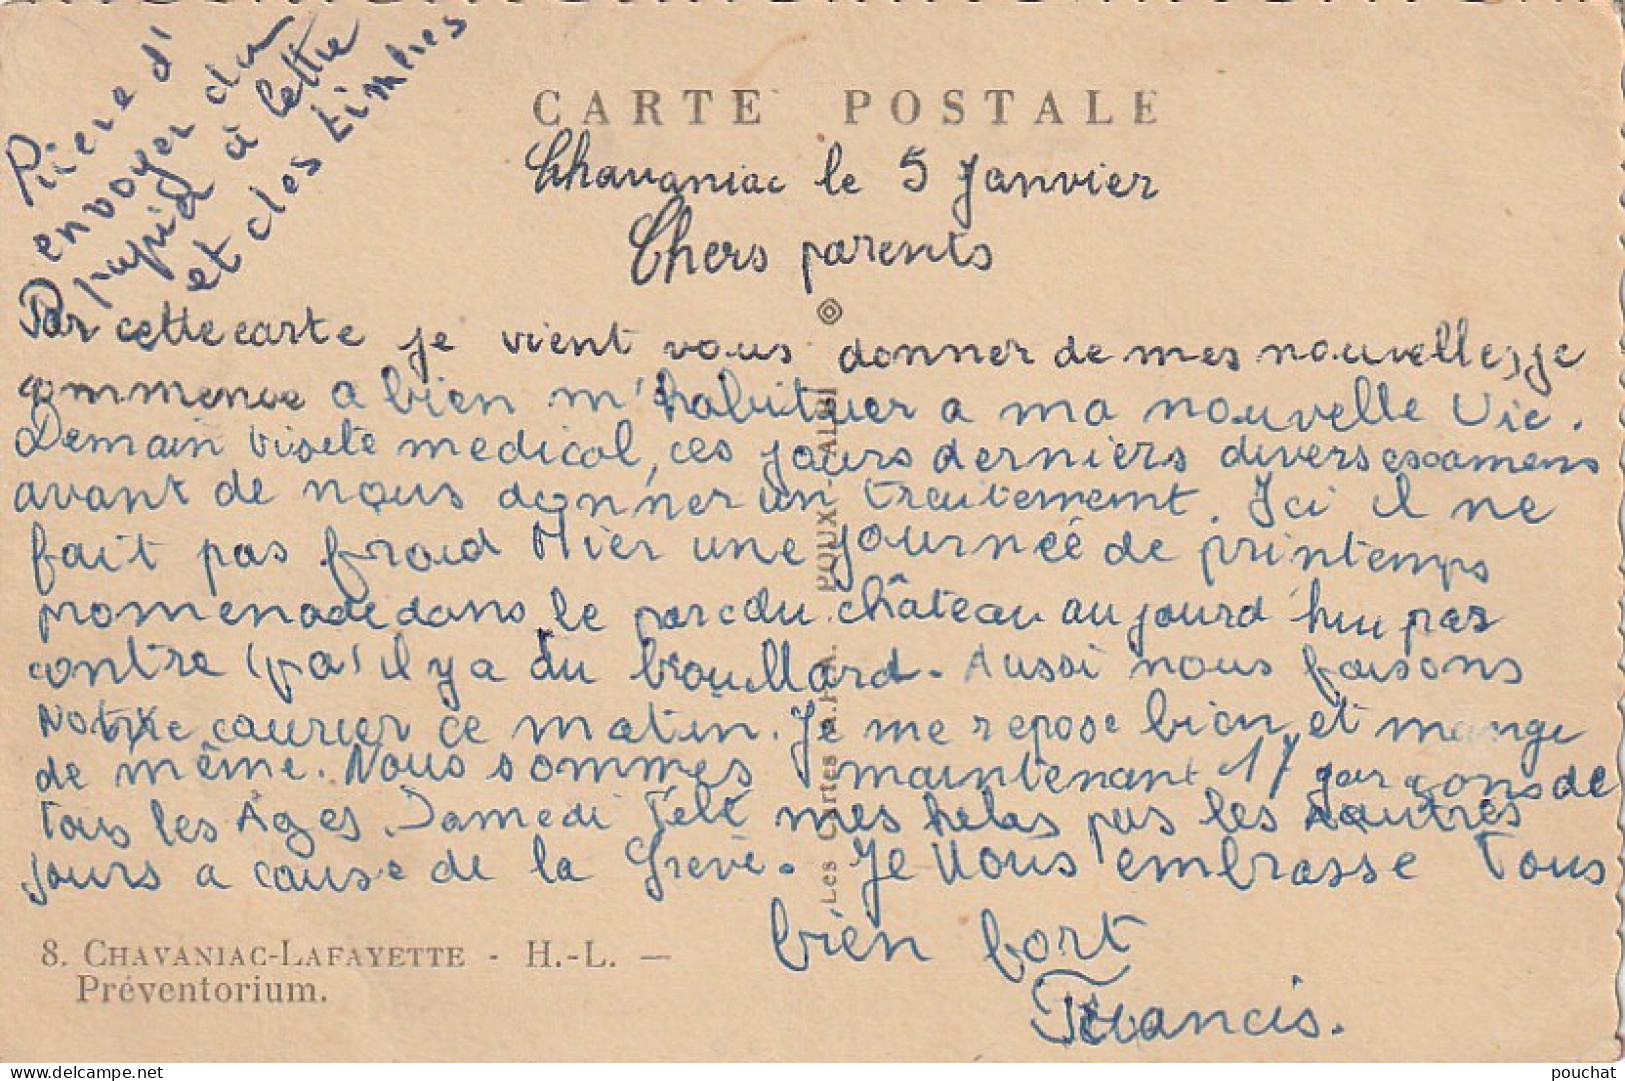 Prière d'
envoyer du
papier à lettre
et des timbres
CARTE POSTALE
Chavaniac le 5 Janvier
Chers parents
Par cette carte je vient vous donner de mes nouvelles, je
commence a bien m'habituer a ma nouvelle vie.
Demain visete medical, ces jours derniers divers examens
avant de nous donner un traitement. Ici il ne
fait pas froid Hier une journée de printemps
promenade dans le parc du château aujourd'hui par
contre (pa) il y a du brouillard. Aussi nous faisons
Notre courier ce matin. Je me repose bien et mange
de même. Nous sommes maintenant 17 garçons de
tous les Ages. Samedi Télé mes helas pas les autres
jours a cause de la Grève. Je Vous embrasse Tous
bien fort
Francis.
8. CHAVANIAC-LAFAYETTE - H.-L. —
Préventorium.
Les Cartes
POUX
pouchat